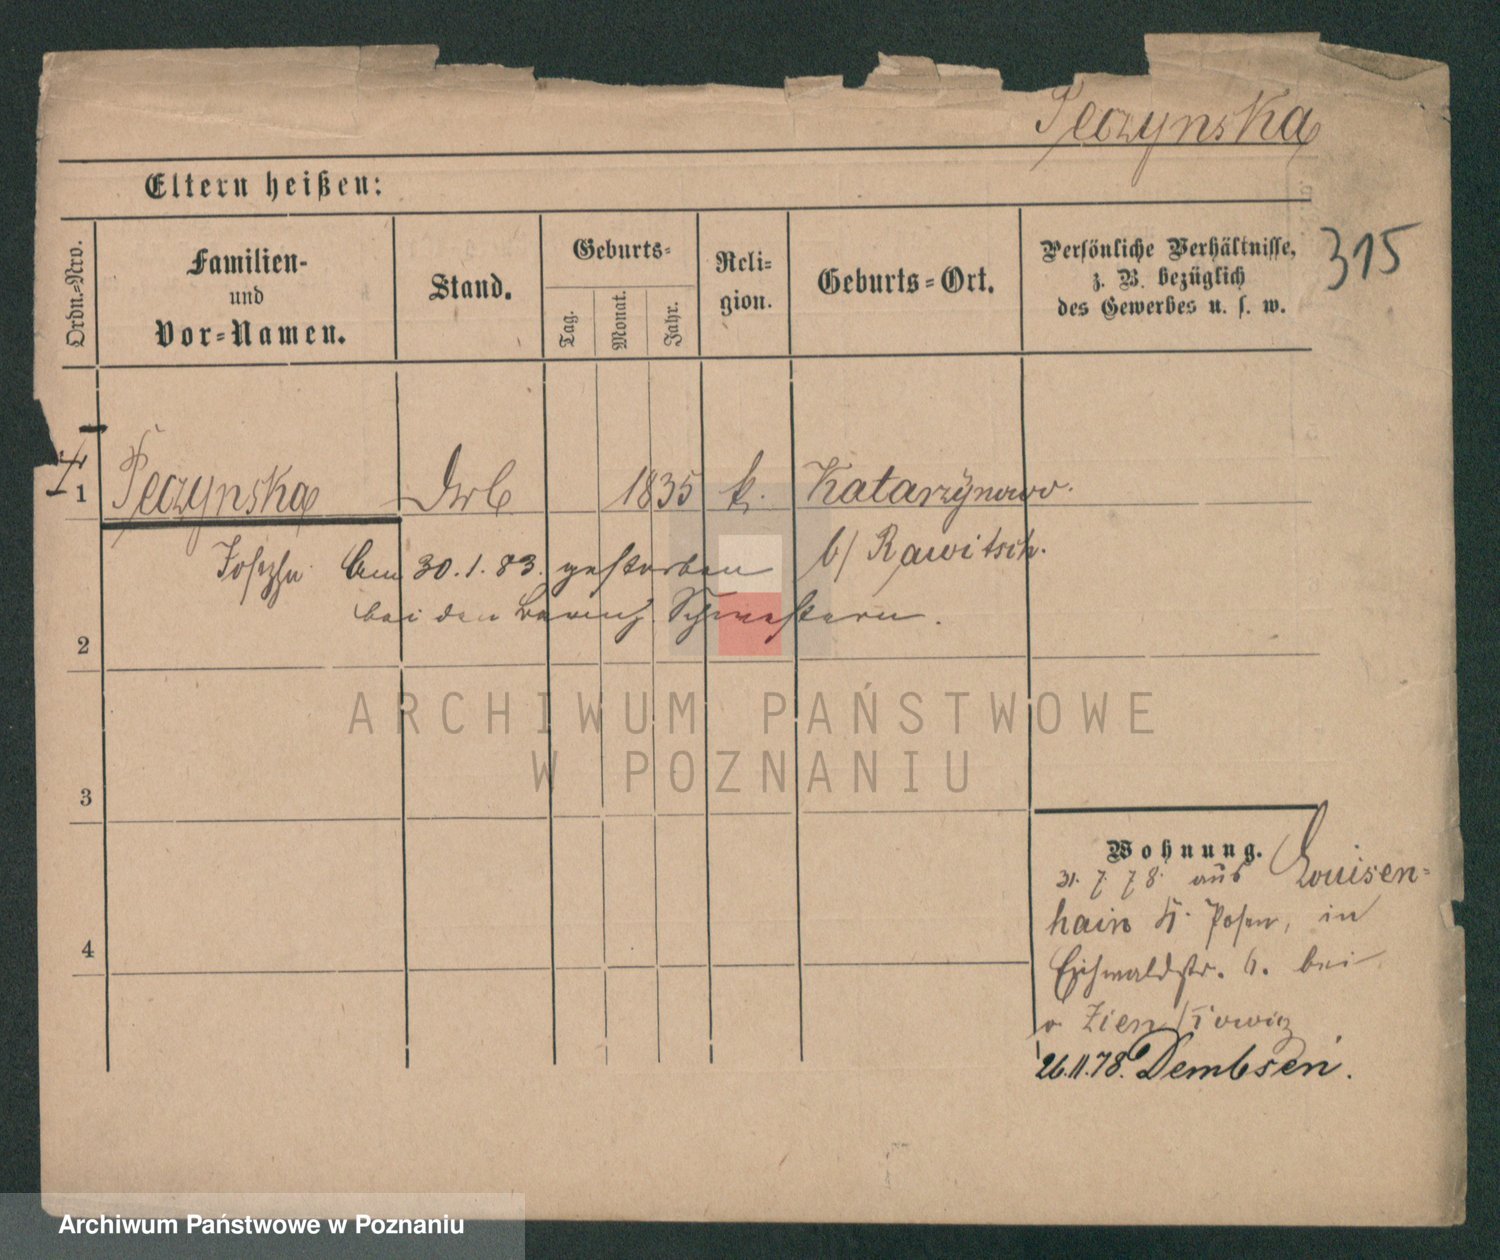 Peczynska
Eltern heißen:
315
Ordn.-Nro.
Familien-
und
Vor-Namen.
Stand.
Geburts-
Tag.
Monat.
Jahr.
Reli-
gion.
Geburts-Ort.
Persönliche Verhältnisse,
z. B. bezüglich
des Gewerbes u. s. w.
1 Peczynska 1835 k. Katarzynowo.
b/ Rawitsch.
Josepha Am 30.1.83. gestorben
bei den barmh. Schwestern.
2
3
4
Wohnung.
31. 7. 78. aus Louisen-
hain Kr. Posen, in
Eichwaldstr. 6. bei
26.11.78. Dembsen.
ARCHIWUM PAŃSTWOWE
W POZNANIU
Archiwum Państwowe w Poznaniu